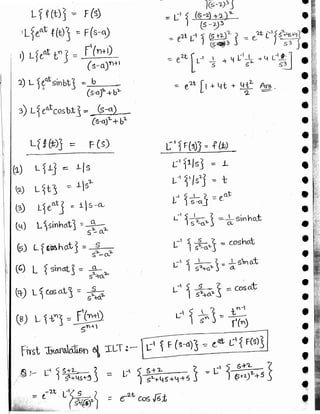 L{f(t)} = F(s)
L{e^at f(t)} = F(s-a)
1) L{e^at t^n} = Γ(n+1) / (s-a)^n+1
2) L{e^at sinbt} = b / (s-a)²+b²
3) L{e^at cosbt} = (s-a) / (s-a)²+b²
= L⁻¹ { (s-2)+2)² / (s-2)³ }
= e^2t L⁻¹ { (s+2)² / s³ } = e^2t L⁻¹ {
= e^2t [ L⁻¹ 1/s + 4 L⁻¹ 1/s² + 4 L⁻¹ 1/s³ ]
= e^2t [ 1 + 4t + 4t²/2 Ans.
L{f(t)} = F(s)
(1) L{1} = 1/s
(2) L{t} = 1/s²
(3) L{e^at} = 1/s-a
(4) L{sinhat} = a / s²-a²
(5) L{coshat} = s / s²-a²
(6) L{sinat} = a / s²+a²
(7) L{cosat} = s / s²+a²
(8) L{t^n} = Γ(n+1) / s^n+1
L⁻¹{F(s)} = f(t)
L⁻¹{1/s} = 1
L⁻¹{1/s²} = t
L⁻¹{1/s-a} = e^at
L⁻¹{1/s²-a²} = 1/a sinhat
L⁻¹{s/s²-a²} = coshat
L⁻¹{1/s²+a²} = 1/a sinat
L⁻¹{s/s²+a²} = cosat
L⁻¹{1/s^n} = t^n-1 / Γ(n)
First Translation of ILT :- L⁻¹{F(s-a)} = e^at L⁻¹{F(s)}
Q:- L⁻¹{s+2 / s²+4s+9} = L⁻¹{s+2 / s²+4s+4+5} = L⁻¹{s+2 / (s+2)²+5}
= e^-2t L⁻¹{s / = e^-2t cos √5t